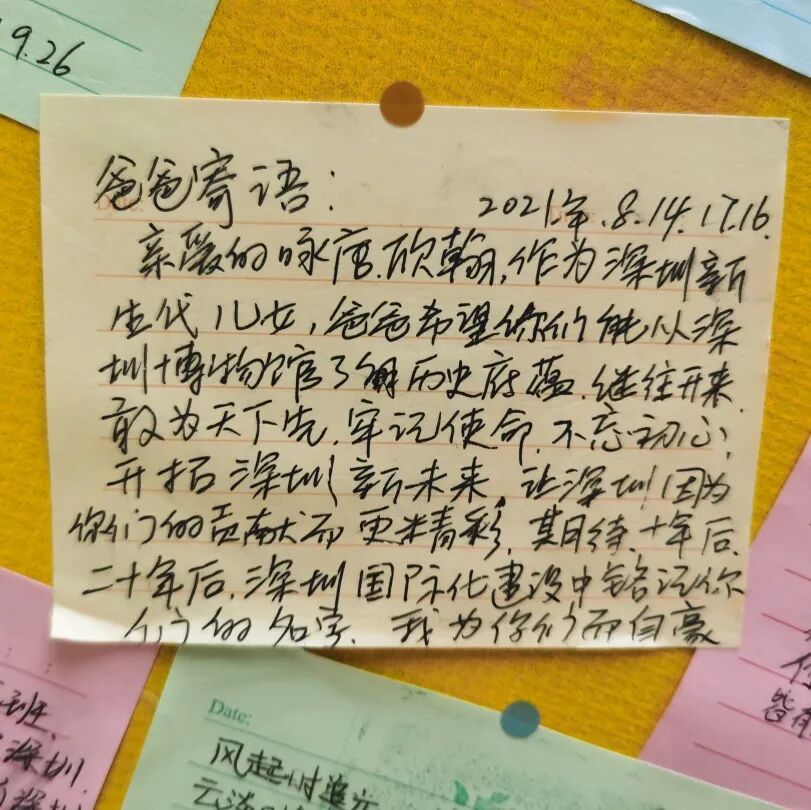 9.26
爸爸寄语:
2021年.8.14.17.16.
亲爱的咏唐.欣翰,作为深圳新
生代儿女,爸爸希望你们能从深
圳博物馆了解历史底蕴.继往开来.
敢为天下先.牢记使命.不忘初心,
开拓深圳新未来,让深圳因为
你们的贡献而更精彩,期待.十年后.
二十年后.深圳国际化建设中铭记你
们的名字.我为你们而自豪
班.
深圳.
Date:
风起时追光
皆有